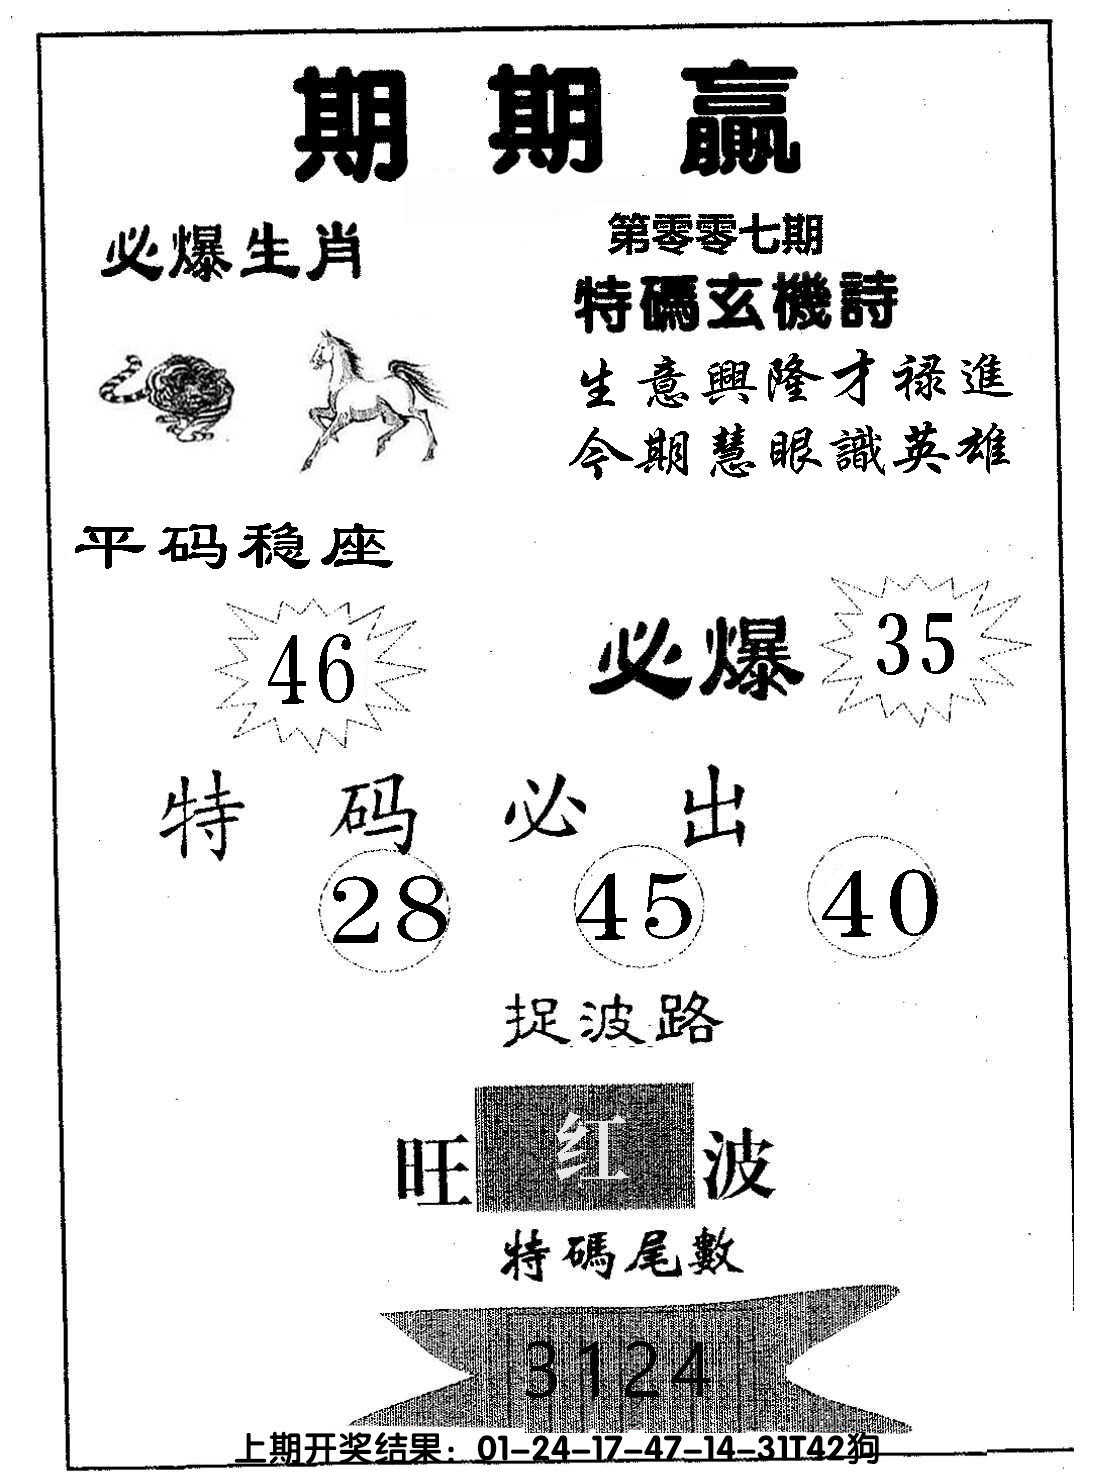 期期赢
必爆生肖
第零零七期
特碼玄機詩
生意興隆才禄進
今期慧眼識英雄
平码稳座
46
必爆 35
特码必出
28 45 40
捉波路
旺红波
特碼尾數
3124
上期开奖结果：01-24-17-47-14-31T42狗